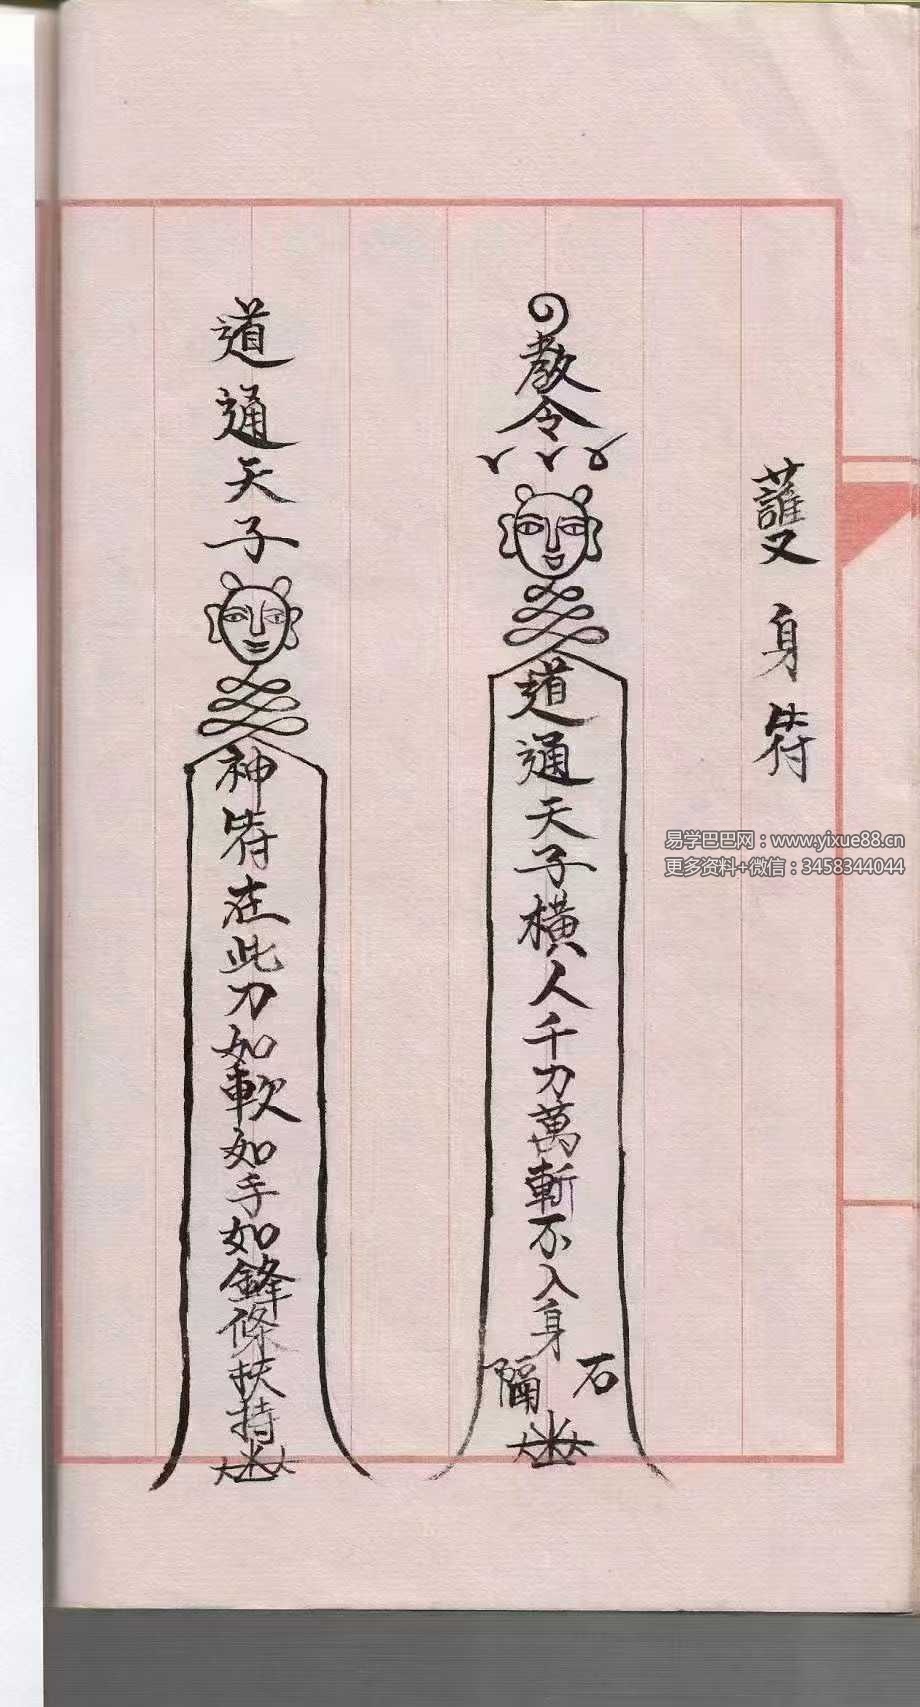 護身符
教令
道通天子橫人千刀萬斬不入身
隔 石
道通天子
神符在此刀如軟如手如鋒條扶持
易学巴巴网：www.yixue88.cn
更多资料+微信：3458344044